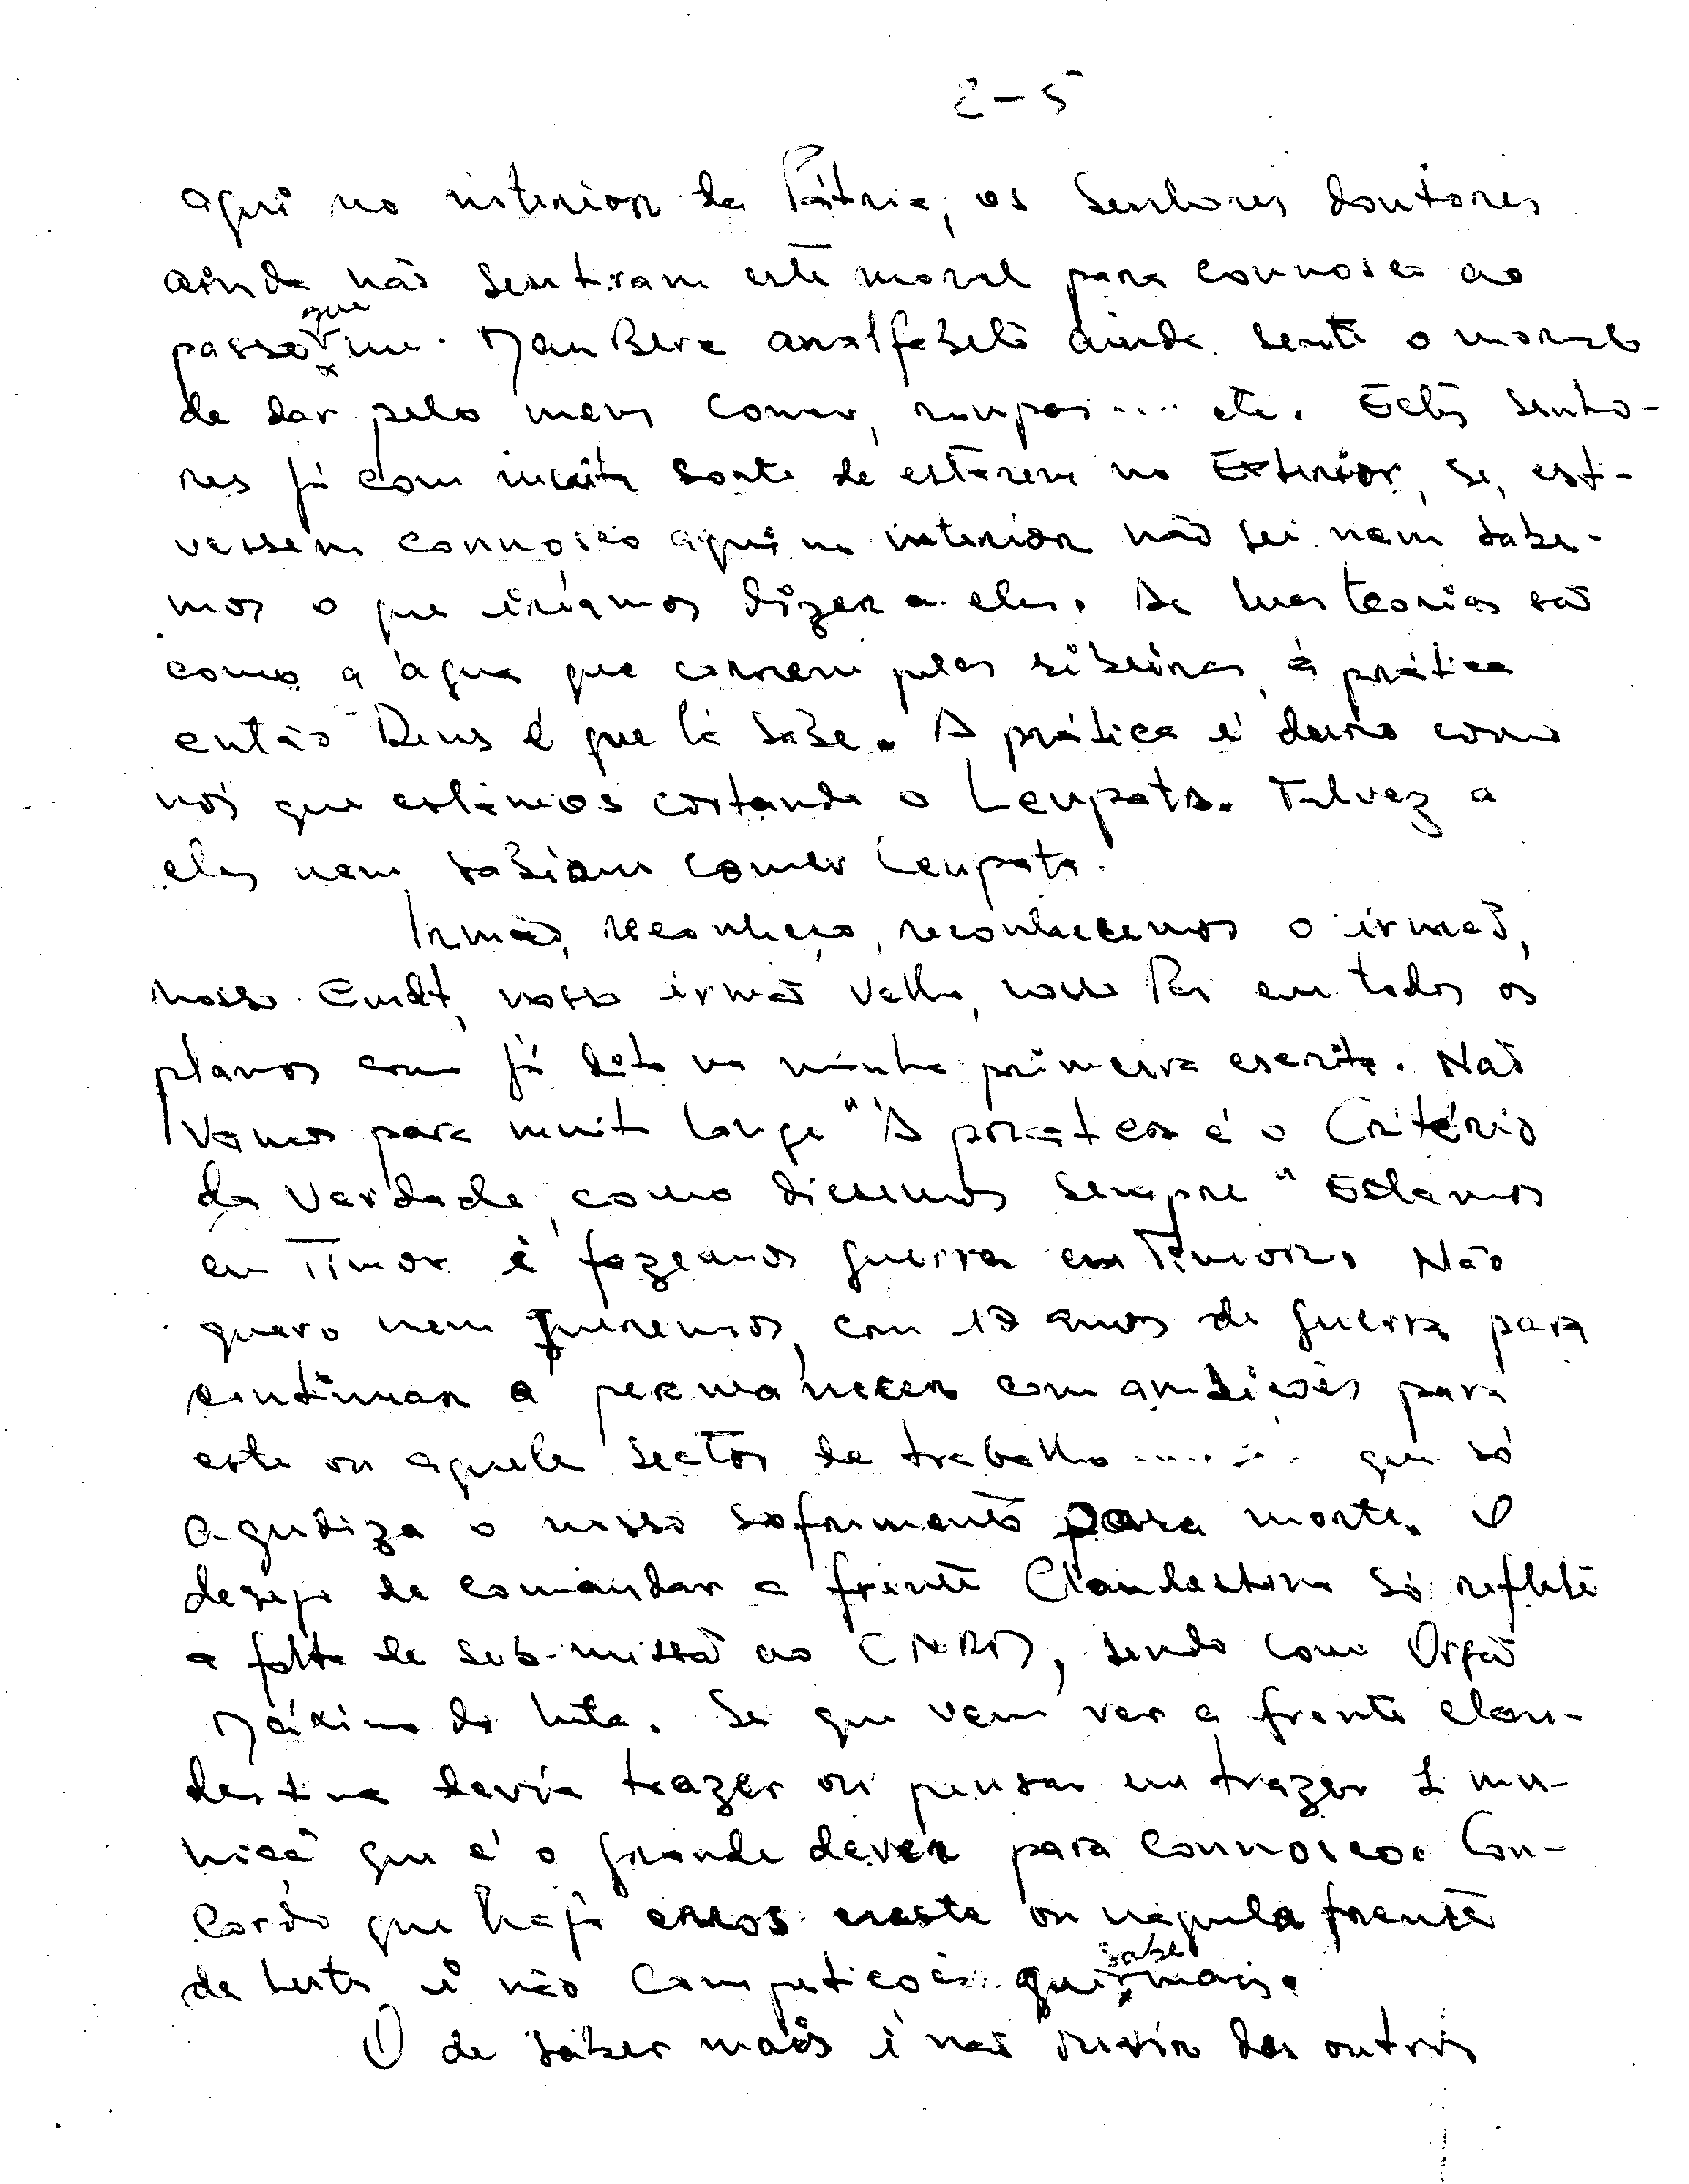 2-5
aqui no interior da Pátria, os Senhores doutores
ainda não sentiram este moral para connosco ao
passo que um MauBere analfabeto ainda sente o moral
de dar pelo menos comer, roupas.... etc. Estes Senho-
res já com muita sorte de estarem no Exterior, se, est-
vessem connosco aqui no interior não sei nem sabe-
mos o que iríamos dizer a eles. As suas teorias são
como a água que correm pelas ribeiras, á prática
então Deus é que lá sabe. A prática é duro como
nós que estámos cortando o Leupata. Talvez a
eles nem sabiam comer Leupata.
Irmão, reconheço, reconhecemos o irmão,
nosso Cmdt, nosso irmão velho, nosso Pai em todos os
planos como já dito na minha primeira escrita. Não
vamos para muito longe "A prática é o Critério
da Verdade, como dissemos sempre" Estamos
em Timor é fazeamos guerra em Timor. Não
quero nem queremos, com 18 anos de guerra para
continuar a permanecer com ambições para
este ou aquele sector de trabalho ...... que só
agudiza o nosso sofrimento para morte. O
desejo de comandar a frente Clandestina só reflete
a falta de sub-missão ao CNRM, sendo como Orgão
Máximo da luta. Se que vem ver a frente clan-
destina devia trazer ou pensar em trazer 1 mu-
nição que é o grande dever para connosco. Con-
cordo que haja erros neste ou naquela frente
de luta é não Competições quem sabe mais.
O de saber mais é não ouvir dos outros